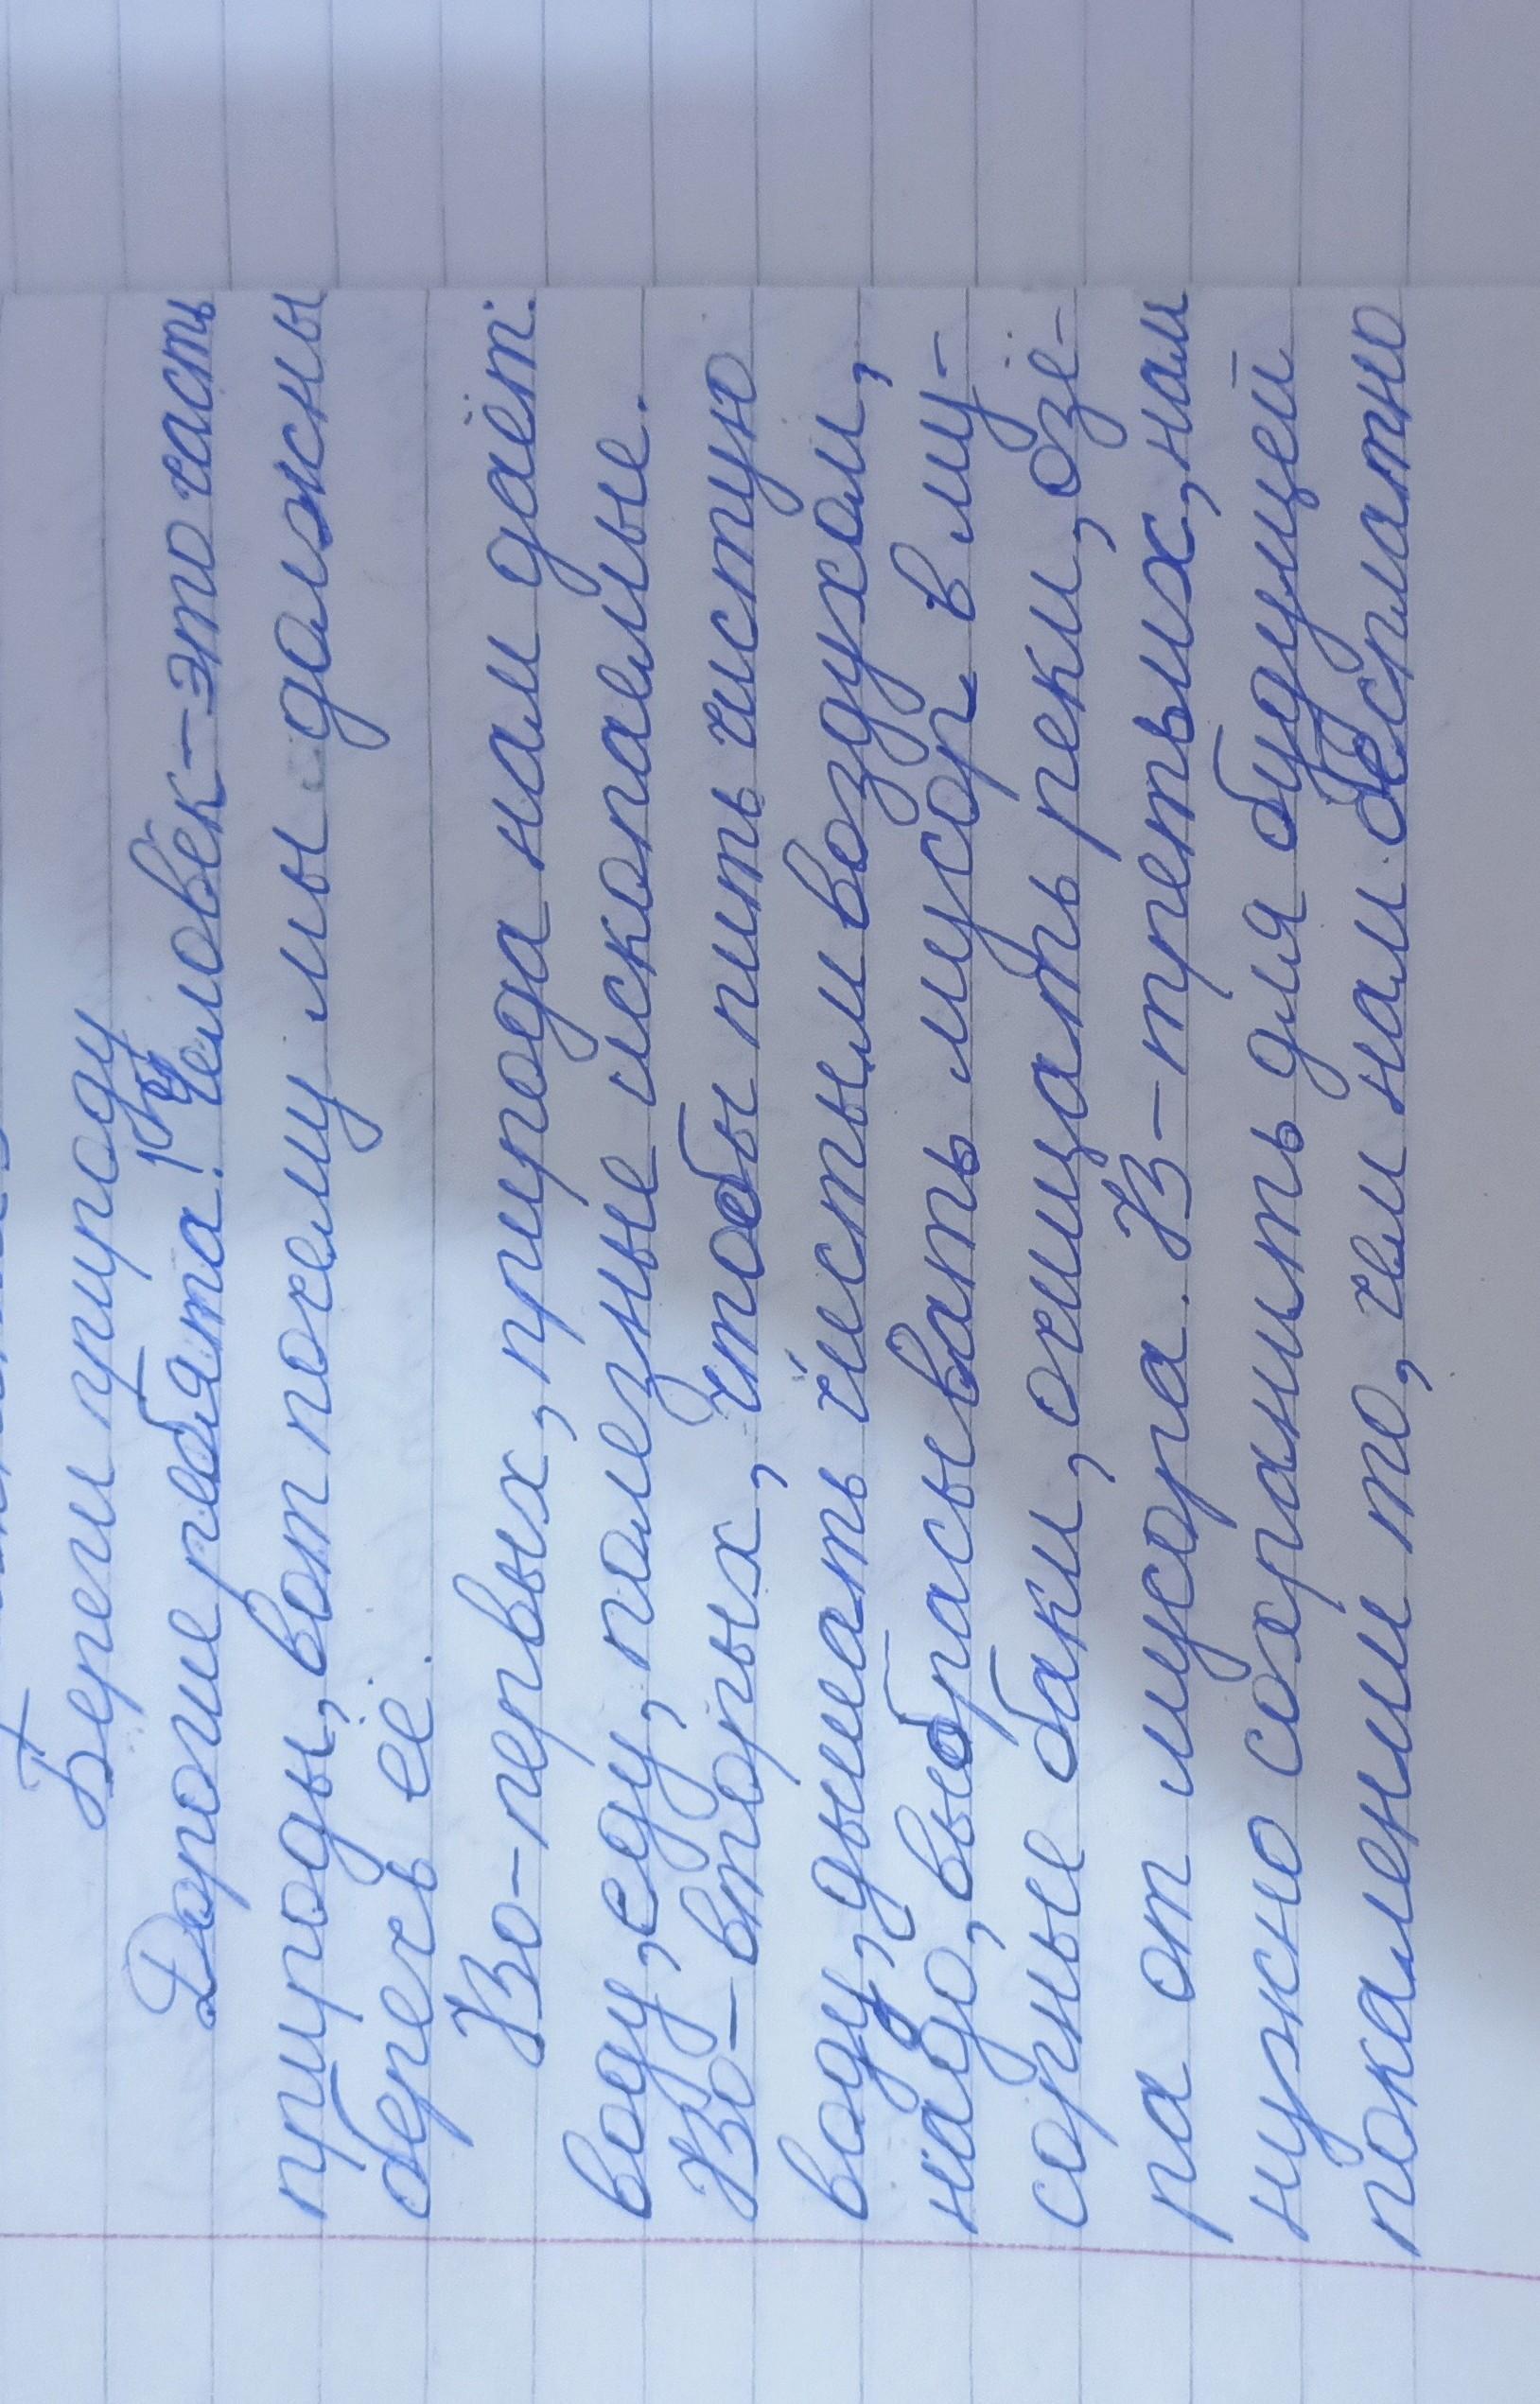 Береги природу
Дорогие ребята! Человек-это часть
природы, вот почему мы должны
беречь её.
Во-первых, природа нам даёт:
воду, еду, полезные ископаемые.
Во-вторых, чтобы пить чистую
воду, дышать чистым воздухом,
надо, выбрасывать мусор в му-
сорные баки, очищать реки, озё-
ра от мусора. В-третьих, нам
нужно сохранить для будущей
покалении то, чем нам бесплатно